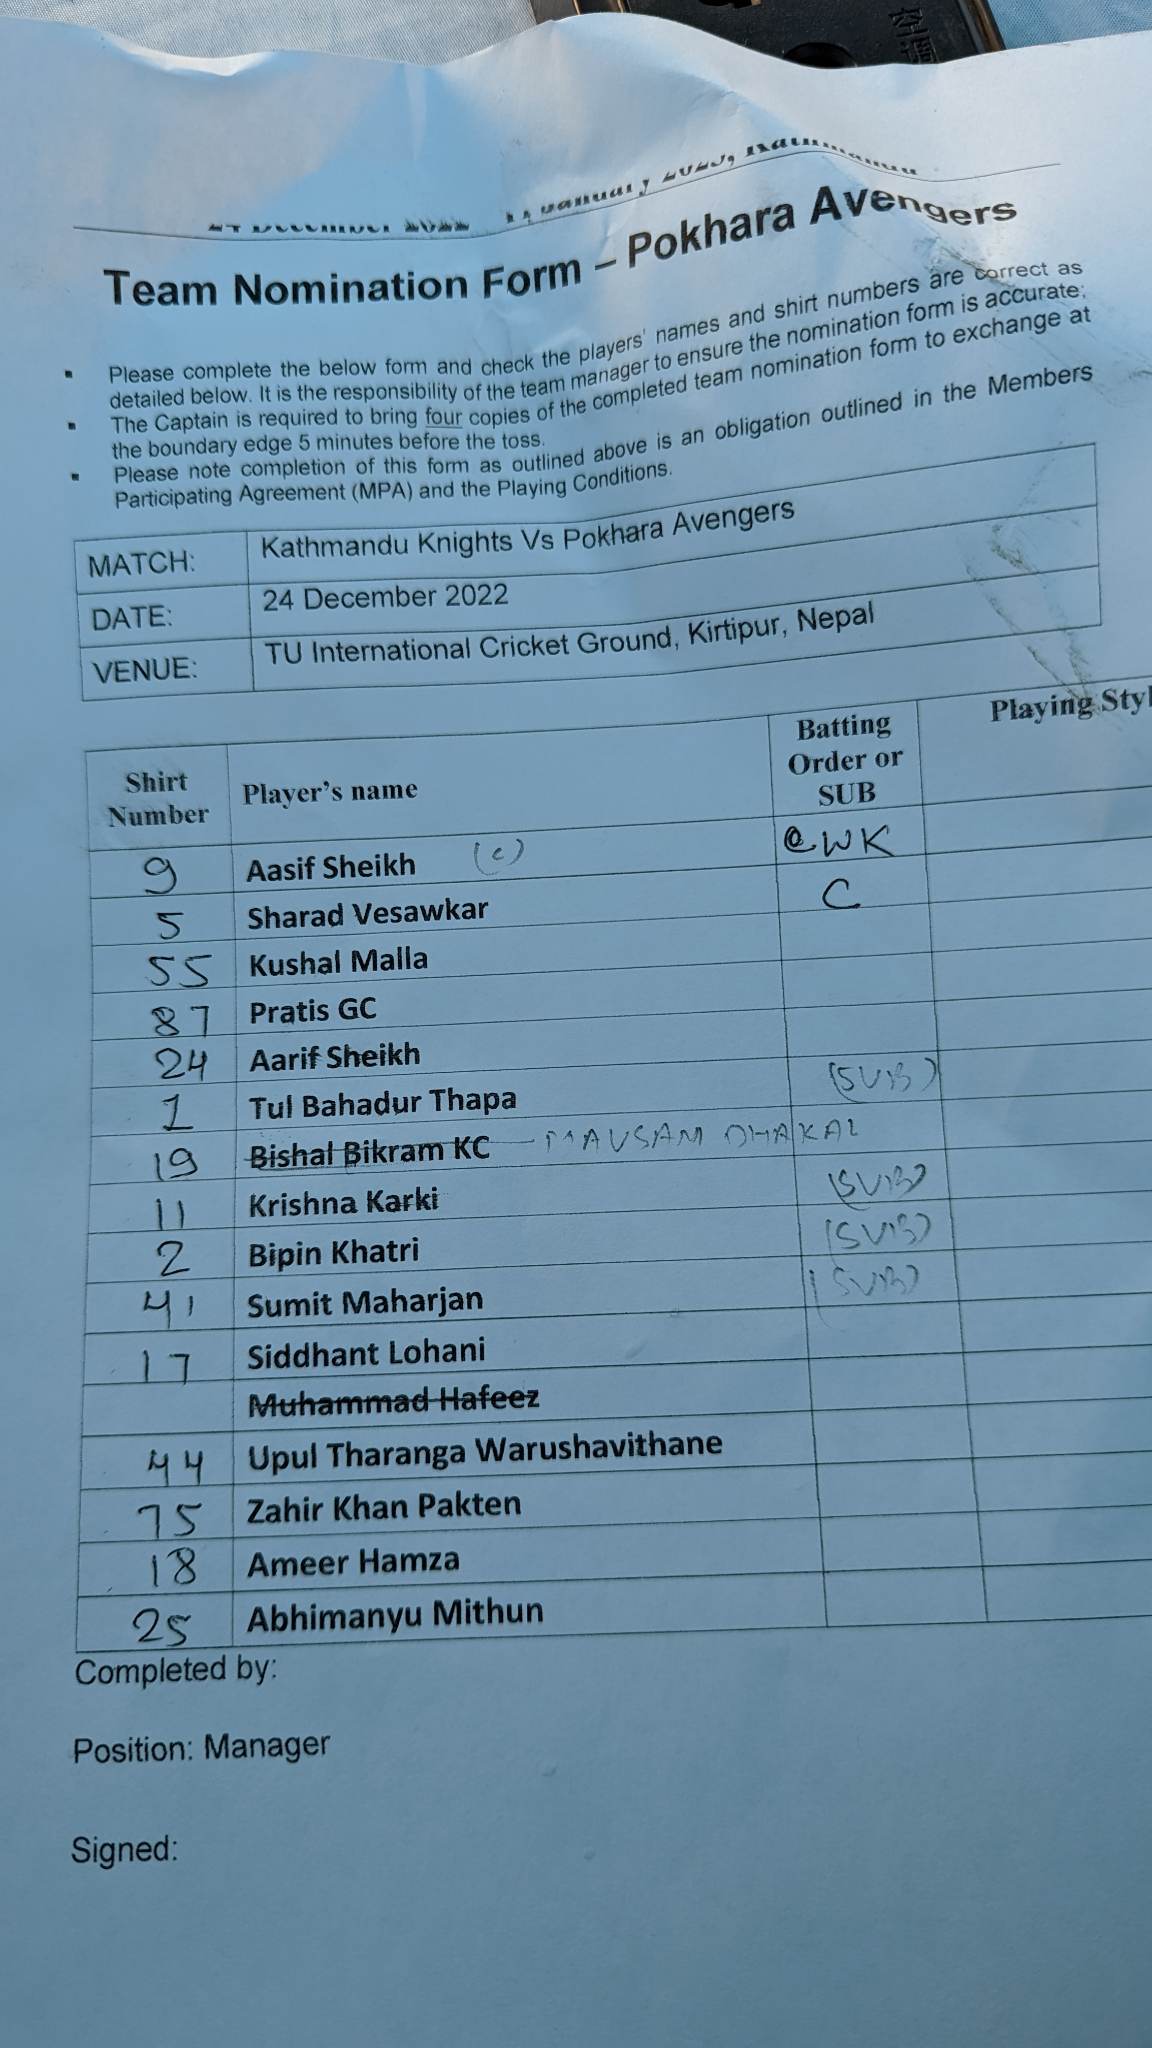 Team Nomination Form – Pokhara Avengers
▪ Please complete the below form and check the players' names and shirt numbers are correct as
detailed below. It is the responsibility of the team manager to ensure the nomination form is accurate;
▪ The Captain is required to bring four copies of the completed team nomination form to exchange at
the boundary edge 5 minutes before the toss.
▪ Please note completion of this form as outlined above is an obligation outlined in the Members
Participating Agreement (MPA) and the Playing Conditions.
MATCH: Kathmandu Knights Vs Pokhara Avengers
DATE: 24 December 2022
VENUE: TU International Cricket Ground, Kirtipur, Nepal
Shirt Number Player's name Batting Order or SUB Playing Styl
9 Aasif Sheikh (c) WK
5 Sharad Vesawkar C
55 Kushal Malla
87 Pratis GC
24 Aarif Sheikh
1 Tul Bahadur Thapa (SUB)
19 Bishal Bikram KC - MAUSAM DHAKAL
11 Krishna Karki (SUB)
2 Bipin Khatri (SUB)
41 Sumit Maharjan (SUB)
17 Siddhant Lohani
Muhammad Hafeez
44 Upul Tharanga Warushavithane
75 Zahir Khan Pakten
18 Ameer Hamza
25 Abhimanyu Mithun
Completed by:
Position: Manager
Signed: